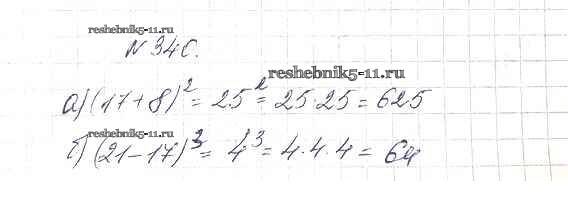 reshebnik5-11.ru
№ 340.
reshebnik5-11.ru
а) (17+8)² = 25² = 25·25 = 625
reshebnik5-11.ru
б) (21-17)³ = 4³ = 4·4·4 = 64